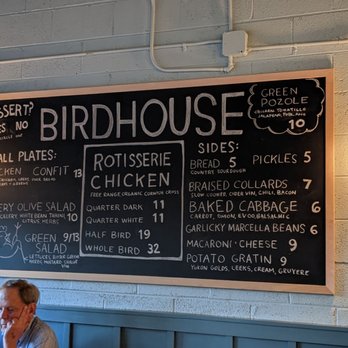 SSERT?
ES OR NO
BIRDHOUSE
GREEN
POZOLE
CHICKEN, TOMATILLO
JALAPEÑO, PORK
10
ALL PLATES:
ICKEN CONFIT 13
ERY OLIVE SALAD 10
CELERY, WHITE BEAN, TAHINI
CITRUS, HERBS
GREEN 9/13
SALAD
LETTUCES, BUTTER BEANS
HERBS, MUSTARD SHALLOT
ROTISSERIE
CHICKEN
FREE RANGE, ORGANIC, CORNISH CROSS
QUARTER DARK 11
QUARTER WHITE 11
HALF BIRD 19
WHOLE BIRD 32
SIDES:
BREAD 5
COUNTRY SOURDOUGH
PICKLES 5
BRAISED COLLARDS 7
SLOW COOKED, CIDER VIN, CHILI, BACON
BAKED CABBAGE 6
CARROT, ONION, EVOO, BALSAMIC
GARLICKY MARCELLA BEANS 6
MACARONI + CHEESE 9
POTATO GRATIN 9
YUKON GOLDS, LEEKS, CREAM, GRUYERE